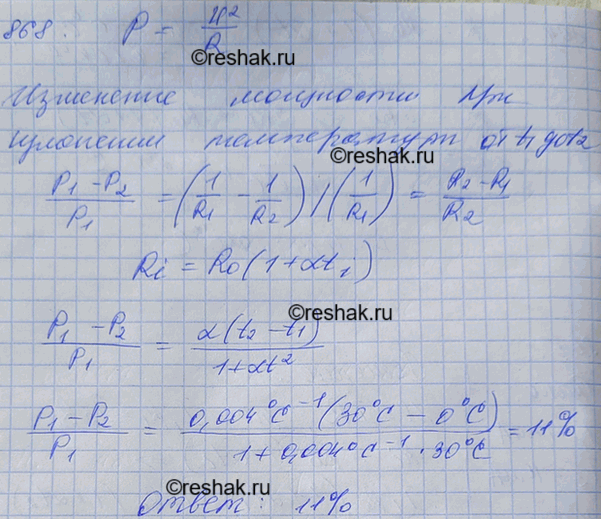 868. P = U²/R
©reshak.ru
Изменение мощности при
изменении температуры от t₁ до t₂
©reshak.ru
(P₁ - P₂)/P₁ = (1/R₁ - 1/R₂) / (1/R₁) = (R₂ - R₁)/R₂
Ri = R₀(1+αti)
©reshak.ru
(P₁ - P₂)/P₁ = α(t₂ - t₁)/(1+αt²)
(P₁ - P₂)/P₁ = 0,004°C⁻¹(30°C - 0°C)/(1+0,004°C⁻¹·30°C) = 11%
©reshak.ru
Ответ: 11%